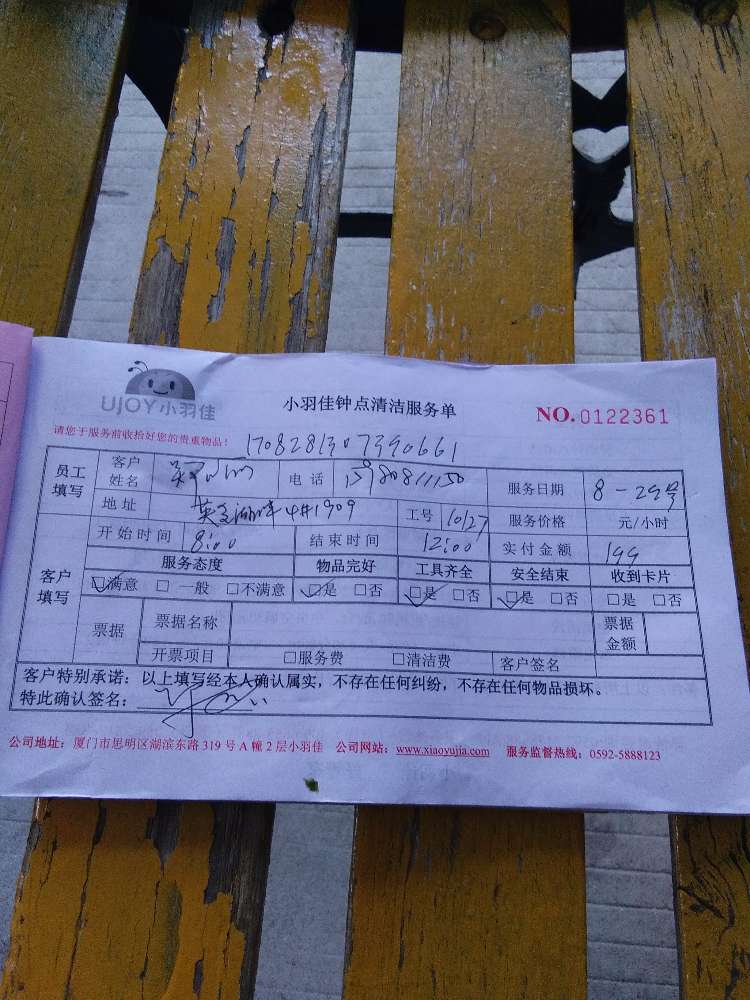 UJOY小羽佳
小羽佳钟点清洁服务单
NO.0122361
请您于服务前收拾好您的贵重物品！
1708281307390661
员工填写 客户姓名 电话 15980811150 服务日期 8-29号
地址 4#1909 工号 10127 服务价格 元/小时
客户填写 开始时间 8:00 结束时间 12:00 实付金额 199
服务态度 物品完好 工具齐全 安全结束 收到卡片
☑满意 □一般 □不满意 ☑是 □否 ☑是 □否 ☑是 □否 □是 □否
票据 票据名称 票据金额
开票项目 □服务费 □清洁费 客户签名
客户特别承诺：以上填写经本人确认属实，不存在任何纠纷，不存在任何物品损坏。
特此确认签名：
公司地址：厦门市思明区湖滨东路 319 号 A 幢 2 层小羽佳 公司网站：www.xiaoyujia.com 服务监督热线：0592-5888123